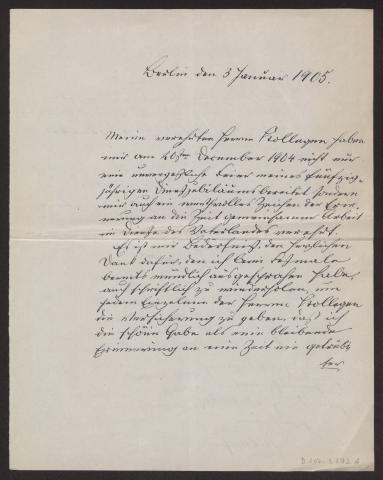 Berlin den 3 Januar 1905.
Meine verehrten Herrn Kollegen haben
mir am 20sten December 1904 nicht nur
eine unvergeßliche Feier meines fünfzig-
jährigen Dienstjubiläums bereitet sondern
mir auch ein werthvolles Zeichen der Erin-
nerung an die Zeit gemeinsamer Arbeit
im Dienste des Vaterlandes verehrt.
Es ist mir Bedürfniß, den herzlichen
Dank dafür, den ich beim Festmale
bereits mündlich ausgesprochen habe,
auch schriftlich zu wiederholen, um
jedem Einzelnen der Herrn Kollegen
die Versicherung zu geben, daß ich
die schöne Gabe als eine bleibende
Erinnerung an eine Zeit nie getrüb-
ter